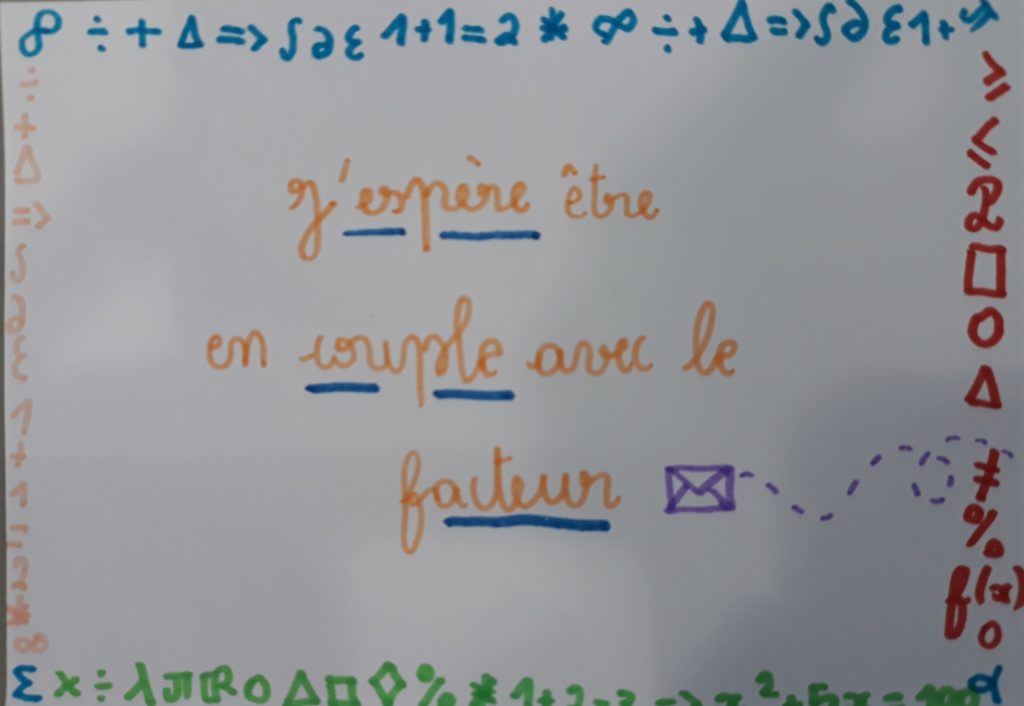 ∞ ÷ + Δ => ∫ ∂ ε 1+1=2 * ∞ ÷ + Δ => ∫ ∂ ε 1 +
÷ + Δ => ∫ ∂ ε 1 + 1 = 2 * ∞
j'espère être
en couple avec le
facteur
⩾ ⩽ ℝ □ O Δ ≠ % f(x) O
Σ x ÷ λ π ℝ O Δ □ ◇ % * 1+2=3 => x²+5x=100 α